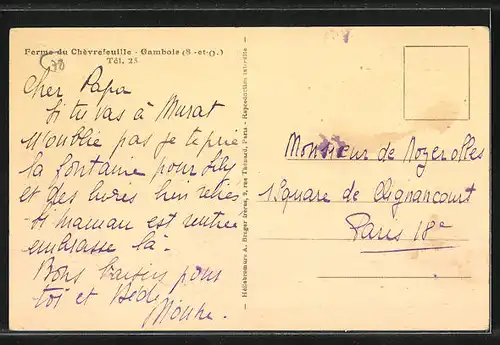 Ferme du Chèvrefeuille - Gambois (S-et-O.)
Tél. 25
Cher Papa
Si tu vas à Murat
n'oublie pas je te prie
la fontaine pour Lily
et des livres bien reliés
Si maman est rentrée
embrasse la -
Bons baisers pour
toi et Bédé
Héliotromure A. Breger frères, 9, rue Thénard, Paris - Reproduction interdite
Monsieur de Nozerolles
1 Square de Clignancourt
Paris 18e